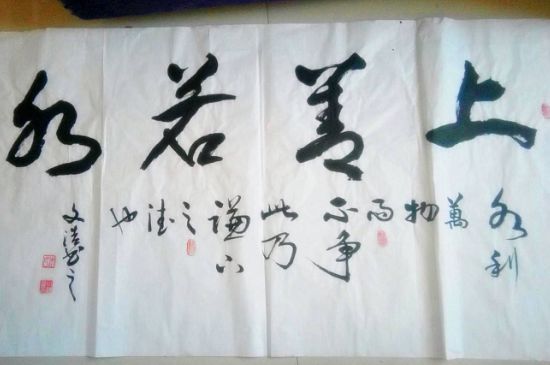 上善若水
水利萬物而不争此乃謙下之德也
文浩书之